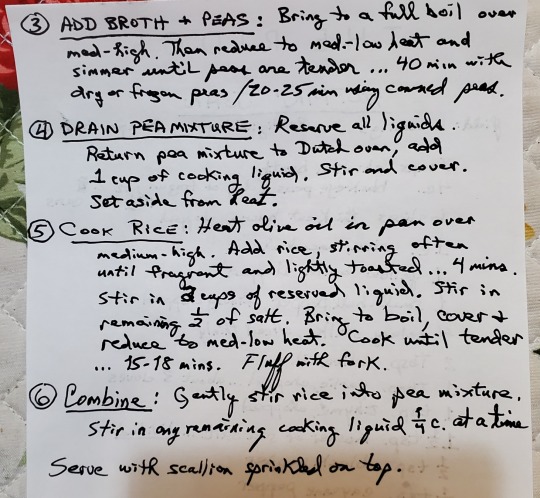 ③ ADD BROTH + PEAS: Bring to a full boil over
med-high. Then reduce to med-low heat and
simmer until peas are tender ... 40 min with
dry or frozen peas / 20-25 min using canned peas.
④ DRAIN PEA MIXTURE: Reserve all liquids.
Return pea mixture to Dutch oven, add
1 cup of cooking liquid. Stir and cover.
Set aside from heat.
⑤ COOK RICE: Heat olive oil in pan over
medium-high. Add rice, stirring often
until fragrant and lightly toasted ... 4 mins.
Stir in cups of reserved liquid. Stir in
remaining 1/2 of salt. Bring to boil, cover +
reduce to med-low heat. Cook until tender
... 15-18 mins. Fluff with fork.
⑥ Combine: Gently stir rice into pea mixture.
Stir in any remaining cooking liquid 1/4 c. at a time
Serve with scallion sprinkled on top.